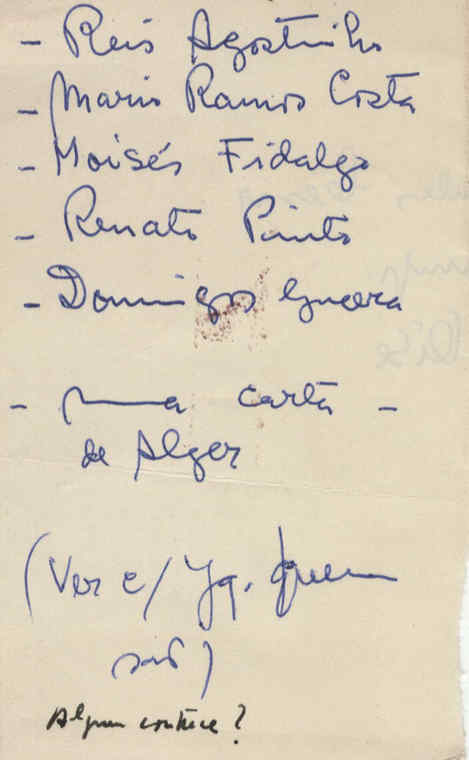 - Reis Agostinho
- Mario Ramos Costa
- Moisés Fidalgo
- Renato Pinto
- Domingos Guerra
- uma carta -
de Alger
(Ver c/ Yg. quem
são)
Alguem conhece?